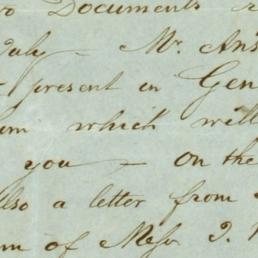 Documents
July — Mr. Ans
present in Gen
which will
you — on the
also a letter from
of Messr J.